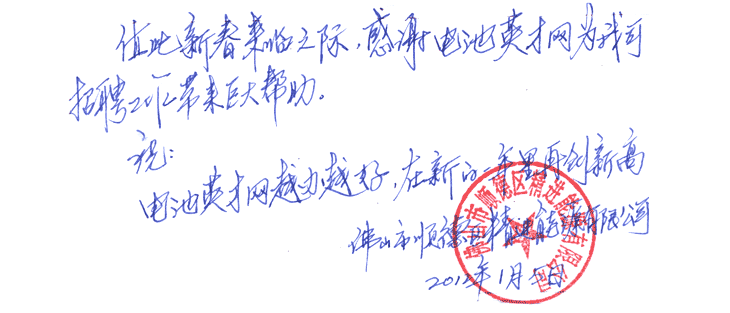 值此新春来临之际,感谢电池英才网为我司
招聘工作带来巨大帮助。
祝:
电池英才网越办越好,在新的一年里再创新高
佛山市顺德区精进能源有限公司
2012年1月 日
佛山市顺德区精进能源有限公司